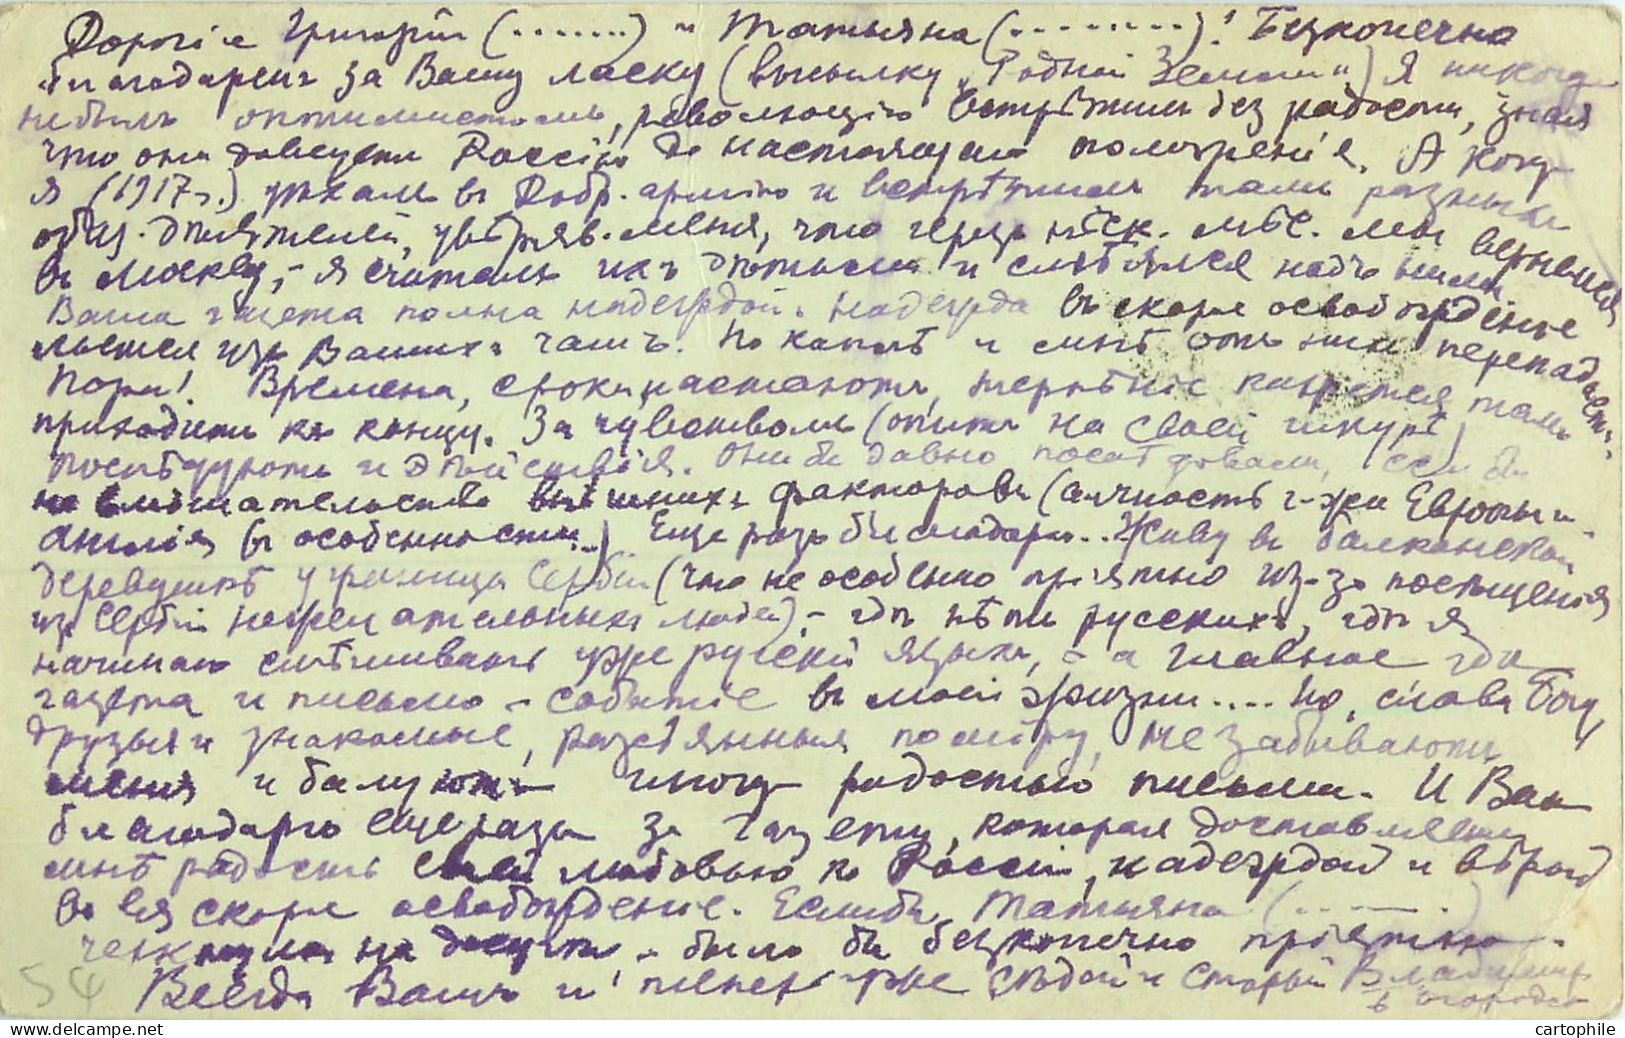 Дорогіе Григорій (.......) и Татьяна (.........)! Безконечно
благодаренъ за Вашу ласку (высылку „Родной Земли") Я никогда
не былъ оптимистомъ, революцію встрѣтилъ безъ радости, зная
что они доведутъ Россію до настоящаго положенія. А когда
я (1917г.) уѣхалъ въ Добр. армію и встрѣтилъ тамъ разныхъ
общ. дѣятелей, увѣряв. меня, что черезъ нѣск. мѣс. мы вернемся
въ Москву, - я считалъ ихъ дѣтьми и смѣялся надъ ними
Ваша газета полна надеждой. Надежда въ скорое освобожденіе
льется изъ Вашихъ чашъ. По каплѣ и мнѣ отъ нихъ перепадаетъ.
Пора! Времена, сроки настаютъ, терпѣніе кажется тамъ
приходитъ къ концу. За чувствомъ (опытъ на своей шкурѣ)
послѣдуютъ и дѣйствія. Они бы давно послѣдовали, если бы
не вмѣшательство внѣшнихъ факторовъ (алчность г-жи Европы и
Англія въ особенности..) Еще разъ благодарю.. Живу въ балканской
деревушкѣ у границы Сербіи (что не особенно пріятно из-за посѣщенія
изъ Сербіи нежелательныхъ людей), - гдѣ нѣтъ русскихъ, гдѣ я
начинаю смѣшивать уже русскій языкъ, - а главное гдѣ
газета и письмо - событіе въ моей жизни.... Но, слава Богу,
друзья и знакомые, разсѣянные по міру, не забываютъ
меня и балуютъ иногда радостью письма. И Вам
благодарю еще разъ за газету, которая доставляетъ
мнѣ радость своей любовью къ Россіи, надеждой и вѣрой
во вся скорое освобожденіе. Если бы Татьяна (.........)
черкнула на досугѣ - было бы безконечно пріятно.
Всегда Вашъ и теперь уже сѣдой и старый Владимір
54
cartophile